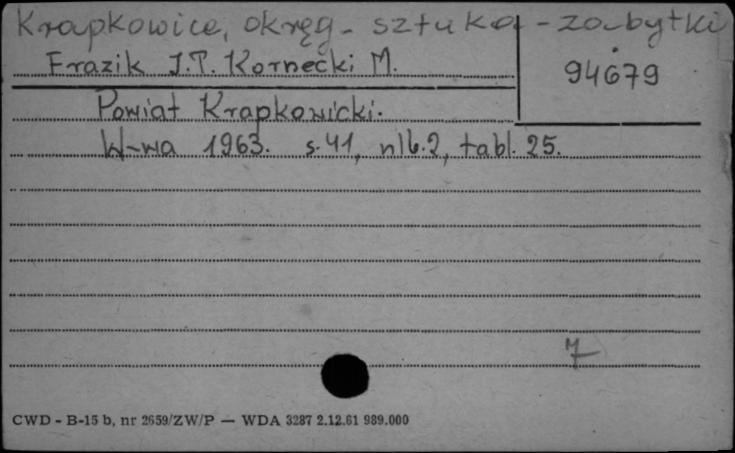 Krapkowice, okręg - sztuka - zabytki
Frazik J.T. Kornecki M.
94679
Powiat Krapkowicki.
W-wa 1963. s. 41, nlb. 2, tabl. 25.
7
CWD - B-15 b, nr 2659/ZW/P — WDA 3287 2.12.61 989.000